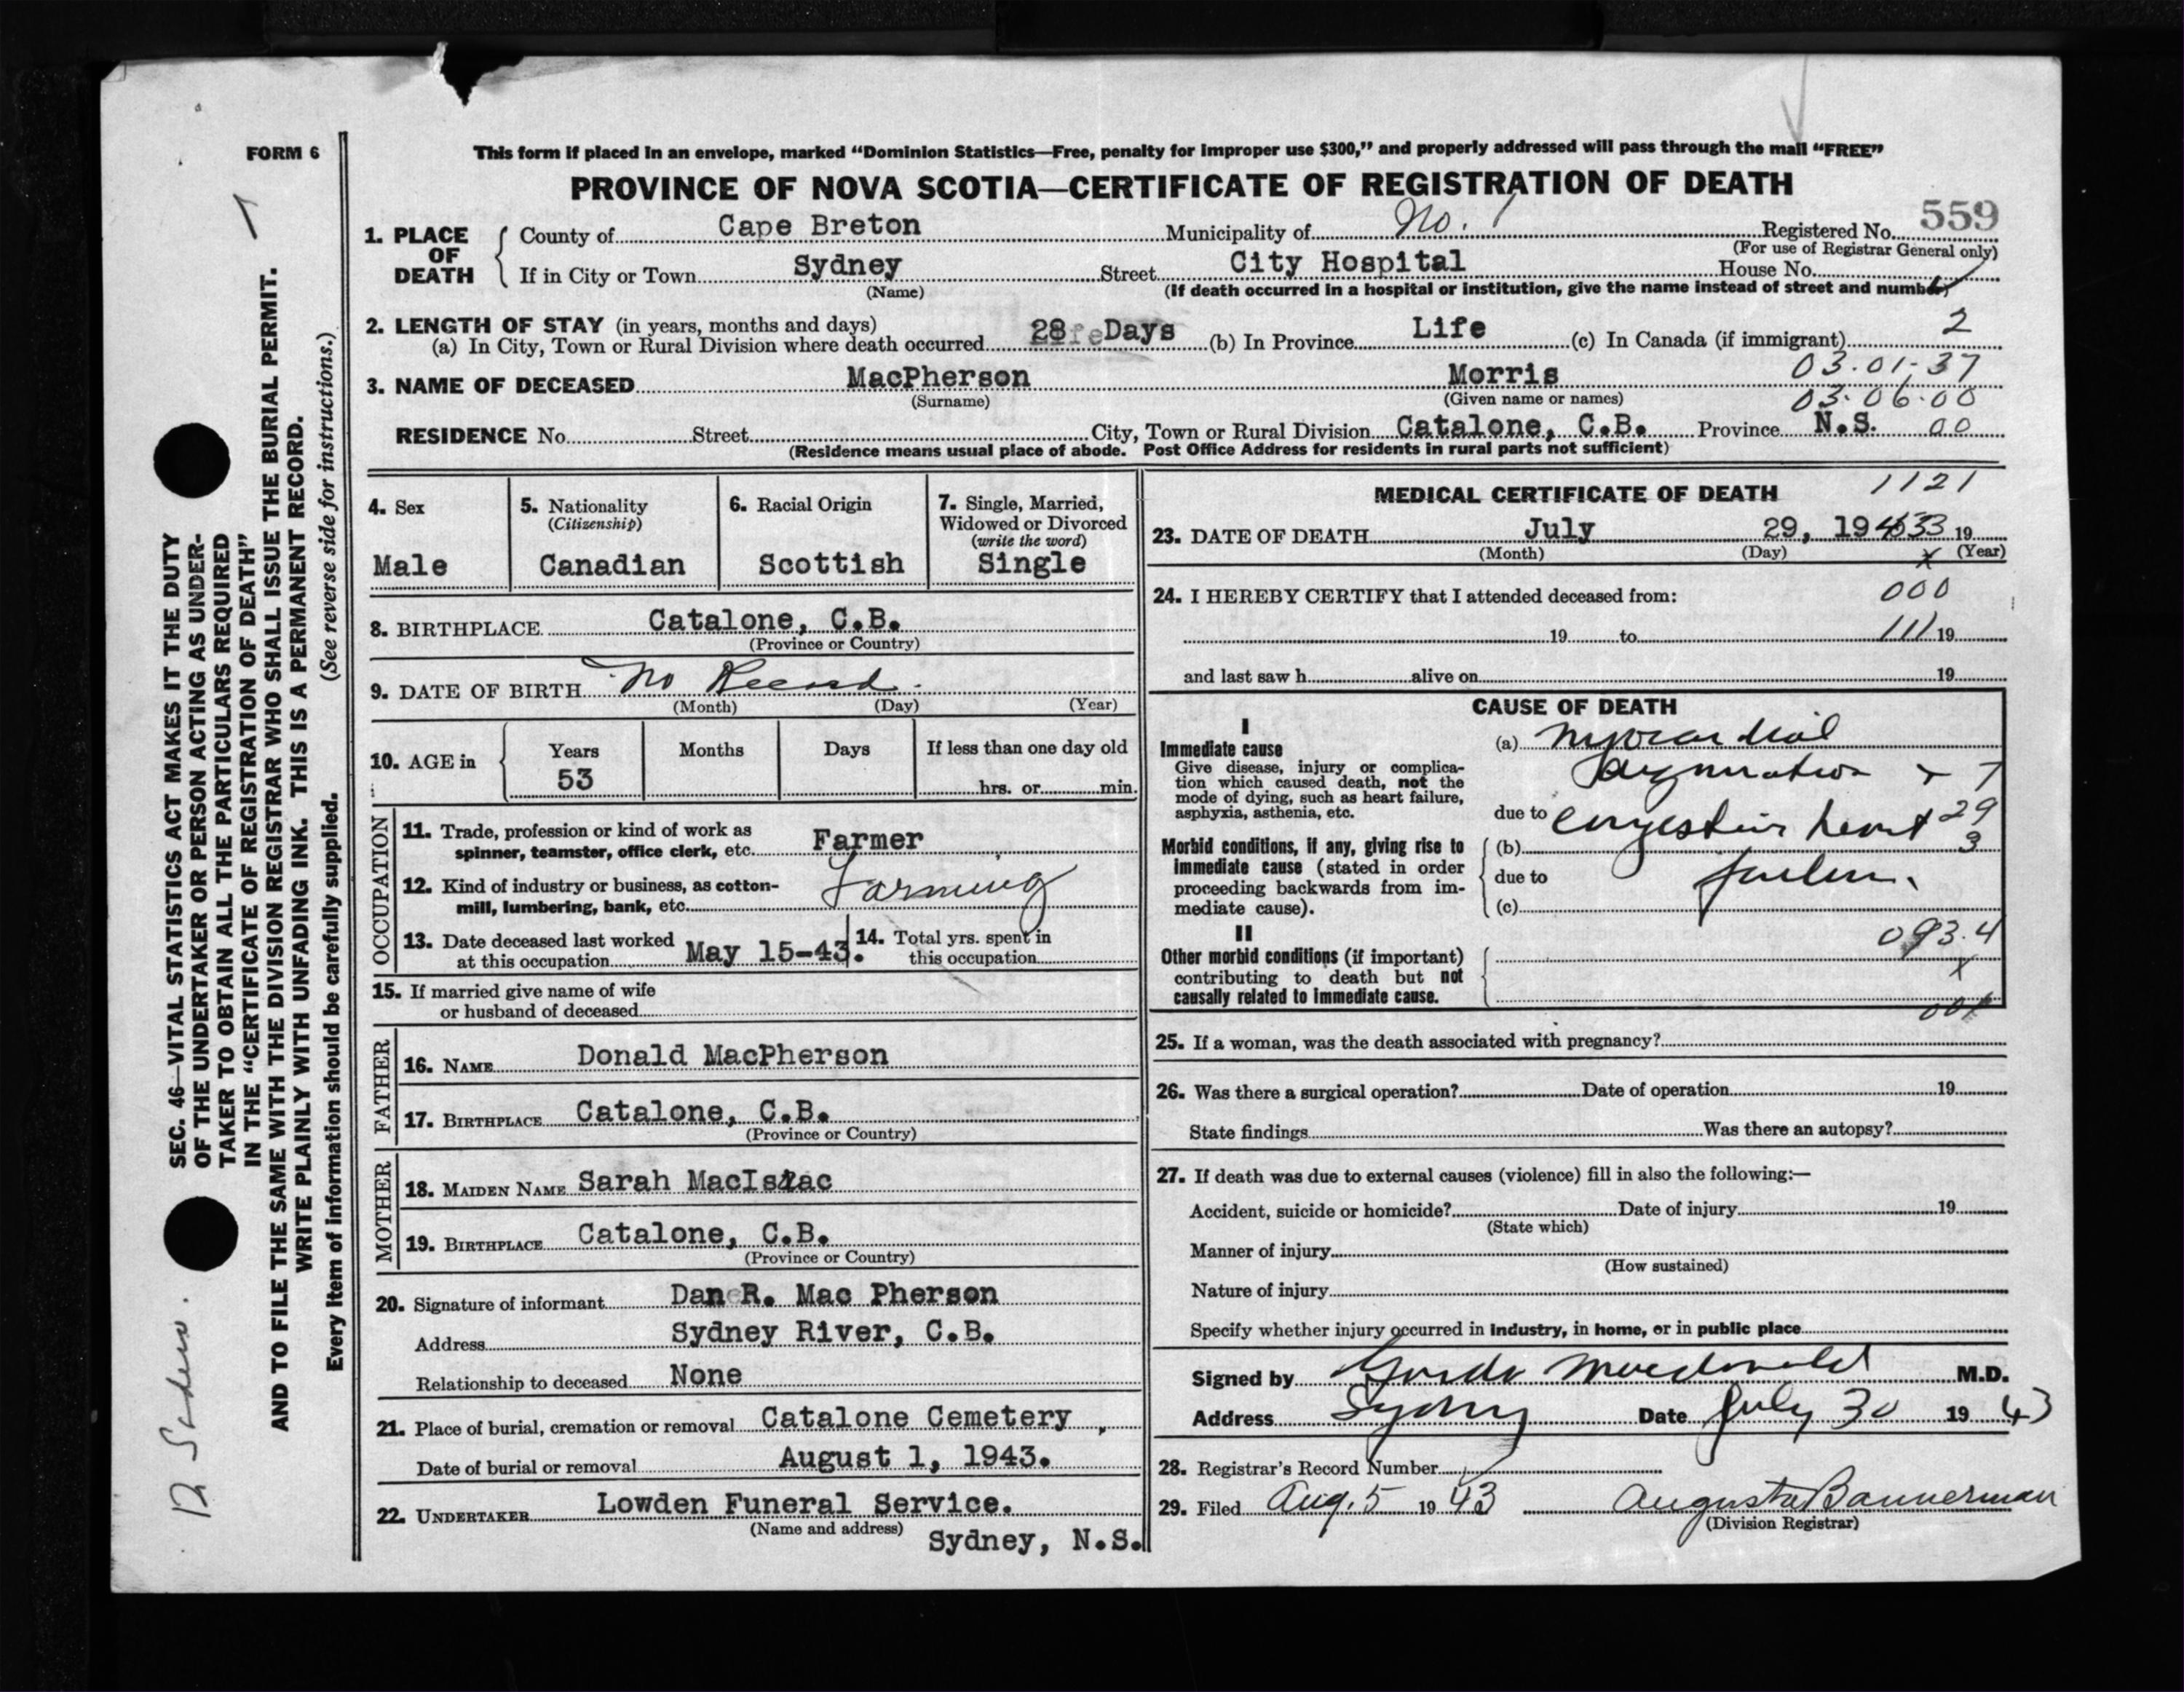 FORM 6
This form if placed in an envelope, marked “Dominion Statistics—Free, penalty for improper use $300,” and properly addressed will pass through the mail “FREE”
PROVINCE OF NOVA SCOTIA—CERTIFICATE OF REGISTRATION OF DEATH
559
1. PLACE OF DEATH
County of Cape Breton Municipality of No. 1 Registered No.
(For use of Registrar General only)
If in City or Town Sydney Street City Hospital House No.
(Name) (If death occurred in a hospital or institution, give the name instead of street and number)
2. LENGTH OF STAY (in years, months and days)
(a) In City, Town or Rural Division where death occurred 28 Days (b) In Province Life (c) In Canada (if immigrant) 2
03.01.37
3. NAME OF DECEASED MacPherson Morris
(Surname) (Given name or names) 03.06.00
RESIDENCE No. Street City, Town or Rural Division Catalone, C.B. Province N.S. 00
(Residence means usual place of abode. Post Office Address for residents in rural parts not sufficient)
4. Sex
Male
5. Nationality
(Citizenship)
Canadian
6. Racial Origin
Scottish
7. Single, Married,
Widowed or Divorced
(write the word)
Single
8. BIRTHPLACE Catalone, C.B.
(Province or Country)
9. DATE OF BIRTH No Record.
(Month) (Day) (Year)
10. AGE in
Years Months Days If less than one day old
53 hrs. or min.
OCCUPATION
11. Trade, profession or kind of work as
spinner, teamster, office clerk, etc. Farmer
12. Kind of industry or business, as cotton-
mill, lumbering, bank, etc. Farming
13. Date deceased last worked
at this occupation May 15-43.
14. Total yrs. spent in
this occupation
15. If married give name of wife
or husband of deceased
FATHER
16. NAME Donald MacPherson
17. BIRTHPLACE Catalone, C.B.
(Province or Country)
MOTHER
18. MAIDEN NAME Sarah MacIsaac
19. BIRTHPLACE Catalone, C.B.
(Province or Country)
20. Signature of informant Dan R. Mac Pherson
Address Sydney River, C.B.
Relationship to deceased None
21. Place of burial, cremation or removal Catalone Cemetery,
Date of burial or removal August 1, 1943.
22. UNDERTAKER Lowden Funeral Service.
(Name and address) Sydney, N.S.
MEDICAL CERTIFICATE OF DEATH 1121
23. DATE OF DEATH July 29, 19 19
(Month) (Day) x (Year)
24. I HEREBY CERTIFY that I attended deceased from: 000
19 to 111 19
and last saw h alive on 19
CAUSE OF DEATH
I
Immediate cause
Give disease, injury or complica-
tion which caused death, not the
mode of dying, such as heart failure,
asphyxia, asthenia, etc.
(a) Myocardial
degeneration
due to congestive heart 29
Morbid conditions, if any, giving rise to
immediate cause (stated in order
proceeding backwards from im-
mediate cause).
(b) 3
due to failure.
(c)
II
Other morbid conditions (if important)
contributing to death but not
causally related to immediate cause.
093.4
x
25. If a woman, was the death associated with pregnancy?
26. Was there a surgical operation? Date of operation 19
State findings Was there an autopsy?
27. If death was due to external causes (violence) fill in also the following:—
Accident, suicide or homicide? Date of injury 19
(State which)
Manner of injury
(How sustained)
Nature of injury
Specify whether injury occurred in industry, in home, or in public place
Signed by Macdonald M.D.
Address Sydney Date July 30 19 43
28. Registrar's Record Number
29. Filed Aug. 5 19 43 Augusta Bannerman
(Division Registrar)
SEC. 46—VITAL STATISTICS ACT MAKES IT THE DUTY
OF THE UNDERTAKER OR PERSON ACTING AS UNDER-
TAKER TO OBTAIN ALL THE PARTICULARS REQUIRED
IN THE “CERTIFICATE OF REGISTRATION OF DEATH”
AND TO FILE THE SAME WITH THE DIVISION REGISTRAR WHO SHALL ISSUE THE BURIAL PERMIT.
WRITE PLAINLY WITH UNFADING INK. THIS IS A PERMANENT RECORD.
Every item of information should be carefully supplied. (See reverse side for instructions.)